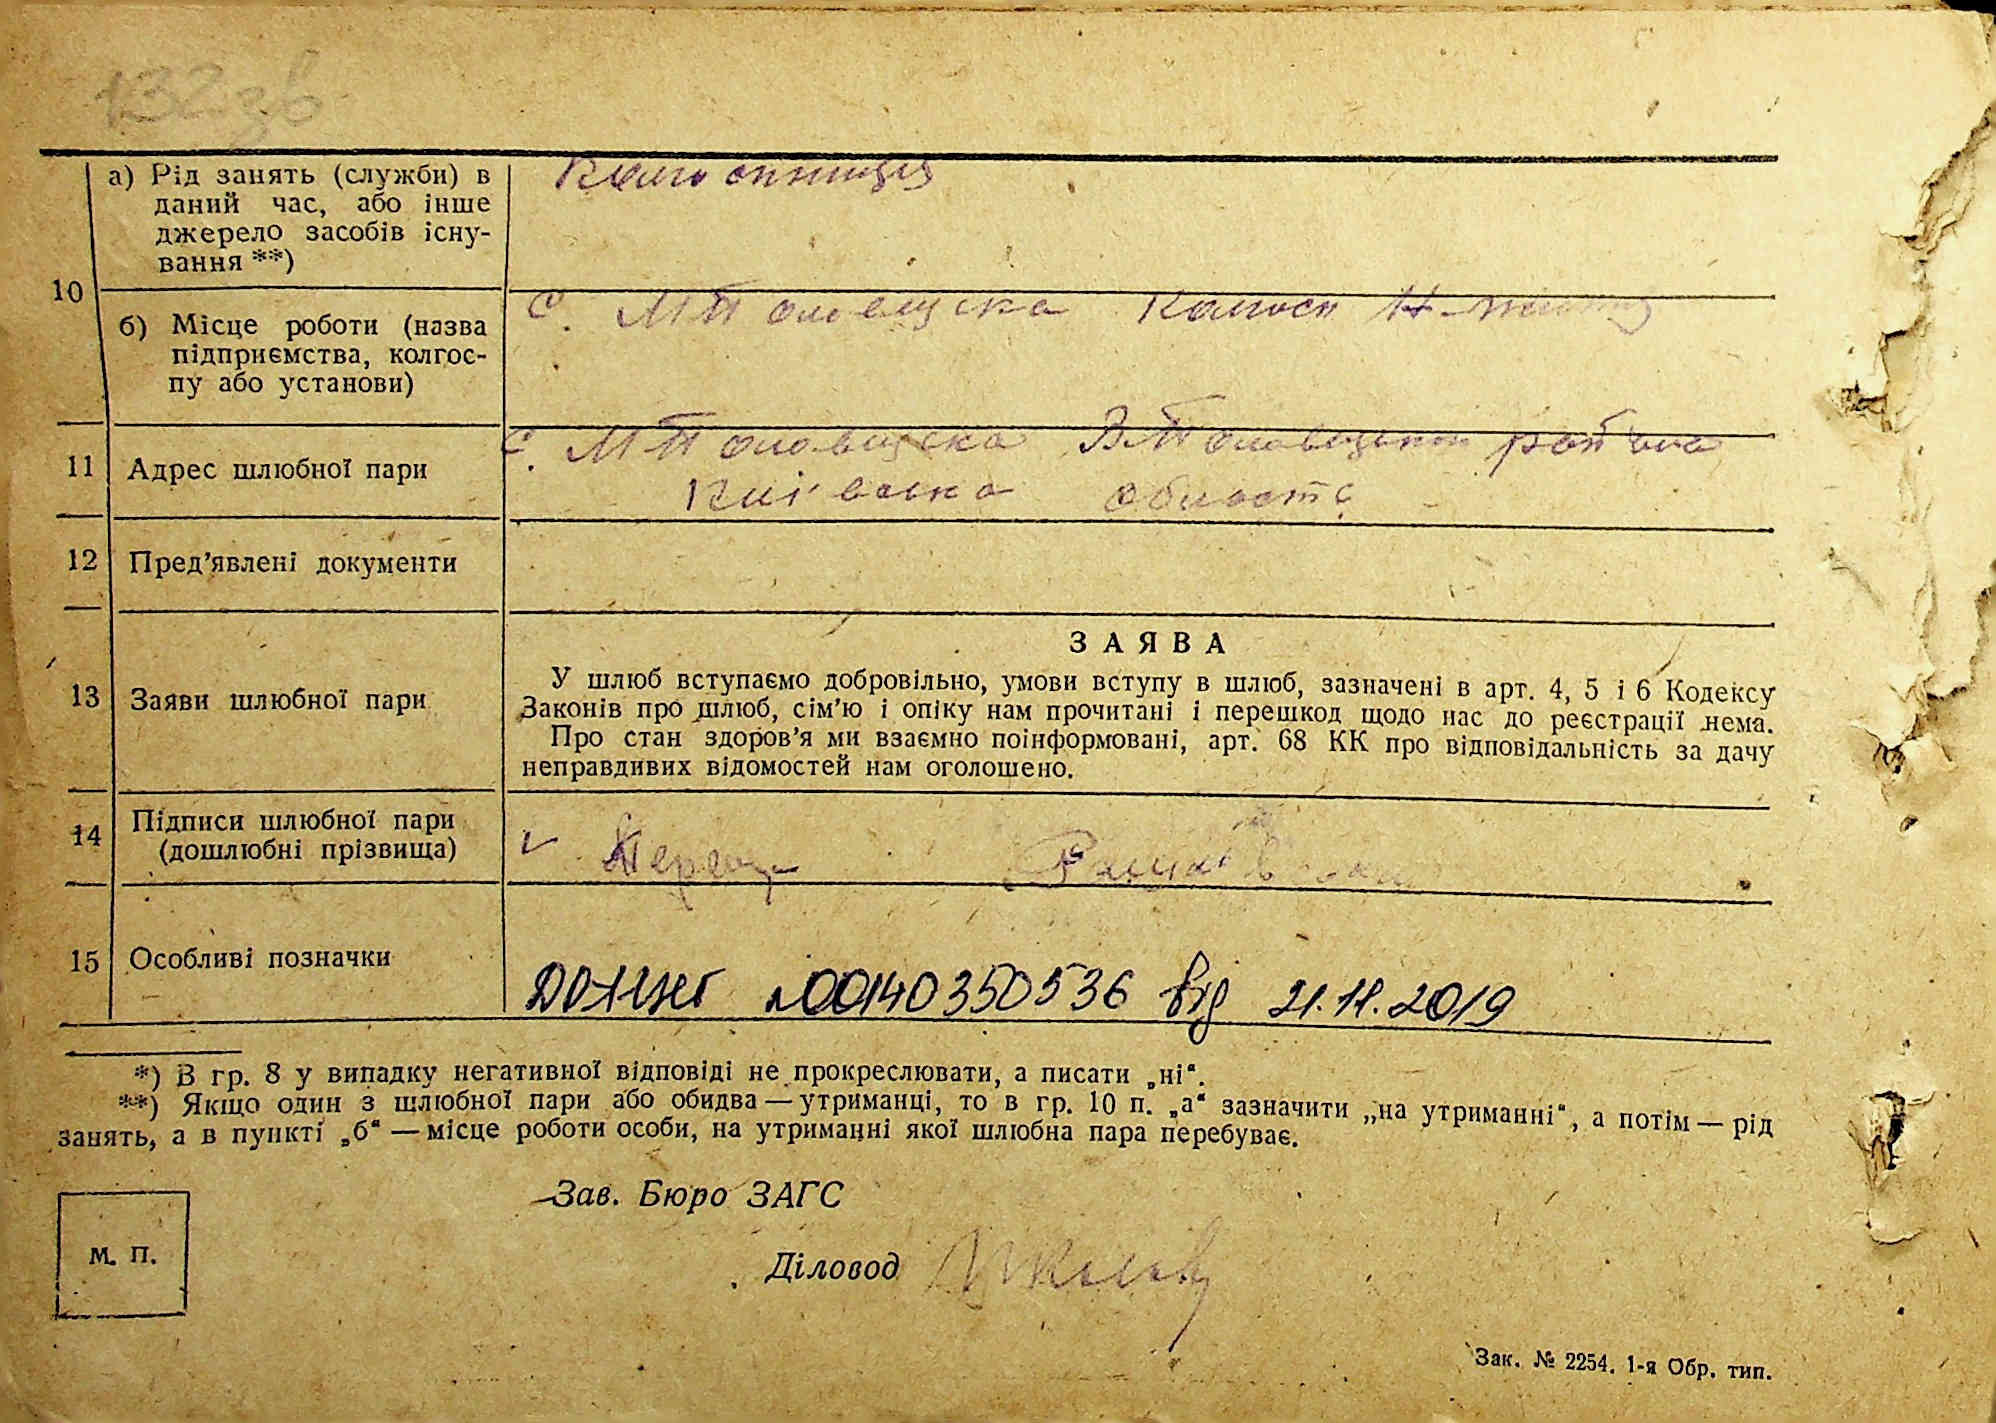 132 зв
а) Рід занять (служби) в
даний час, або інше
джерело засобів існу-
вання **)
Колгоспниця
10
б) Місце роботи (назва
підприємства, колгос-
пу або установи)
с. М Половецька Колгосп
11
Адрес шлюбної пари
с. М Половецька В Половецького рай-на
Київська область
12
Пред'явлені документи
ЗАЯВА
13
Заяви шлюбної пари
У шлюб вступаємо добровільно, умови вступу в шлюб, зазначені в арт. 4, 5 і 6 Кодексу
Законів про шлюб, сім'ю і опіку нам прочитані і перешкод щодо нас до реєстрації нема.
Про стан здоров'я ми взаємно поінформовані, арт. 68 КК про відповідальність за дачу
неправдивих відомостей нам оголошено.
14
Підписи шлюбної пари
(дошлюбні прізвища)
15
Особливі позначки
№00140350536 від 21.11.2019
*) В гр. 8 у випадку негативної відповіді не прокреслювати, а писати „ні“.
**) Якщо один з шлюбної пари або обидва — утриманці, то в гр. 10 п. „а“ зазначити „на утриманні“, а потім — рід
занять, а в пункті „б“ — місце роботи особи, на утриманні якої шлюбна пара перебуває.
Зав. Бюро ЗАГС
М. П.
Діловод
Зак. № 2254. 1-я Обр. тип.